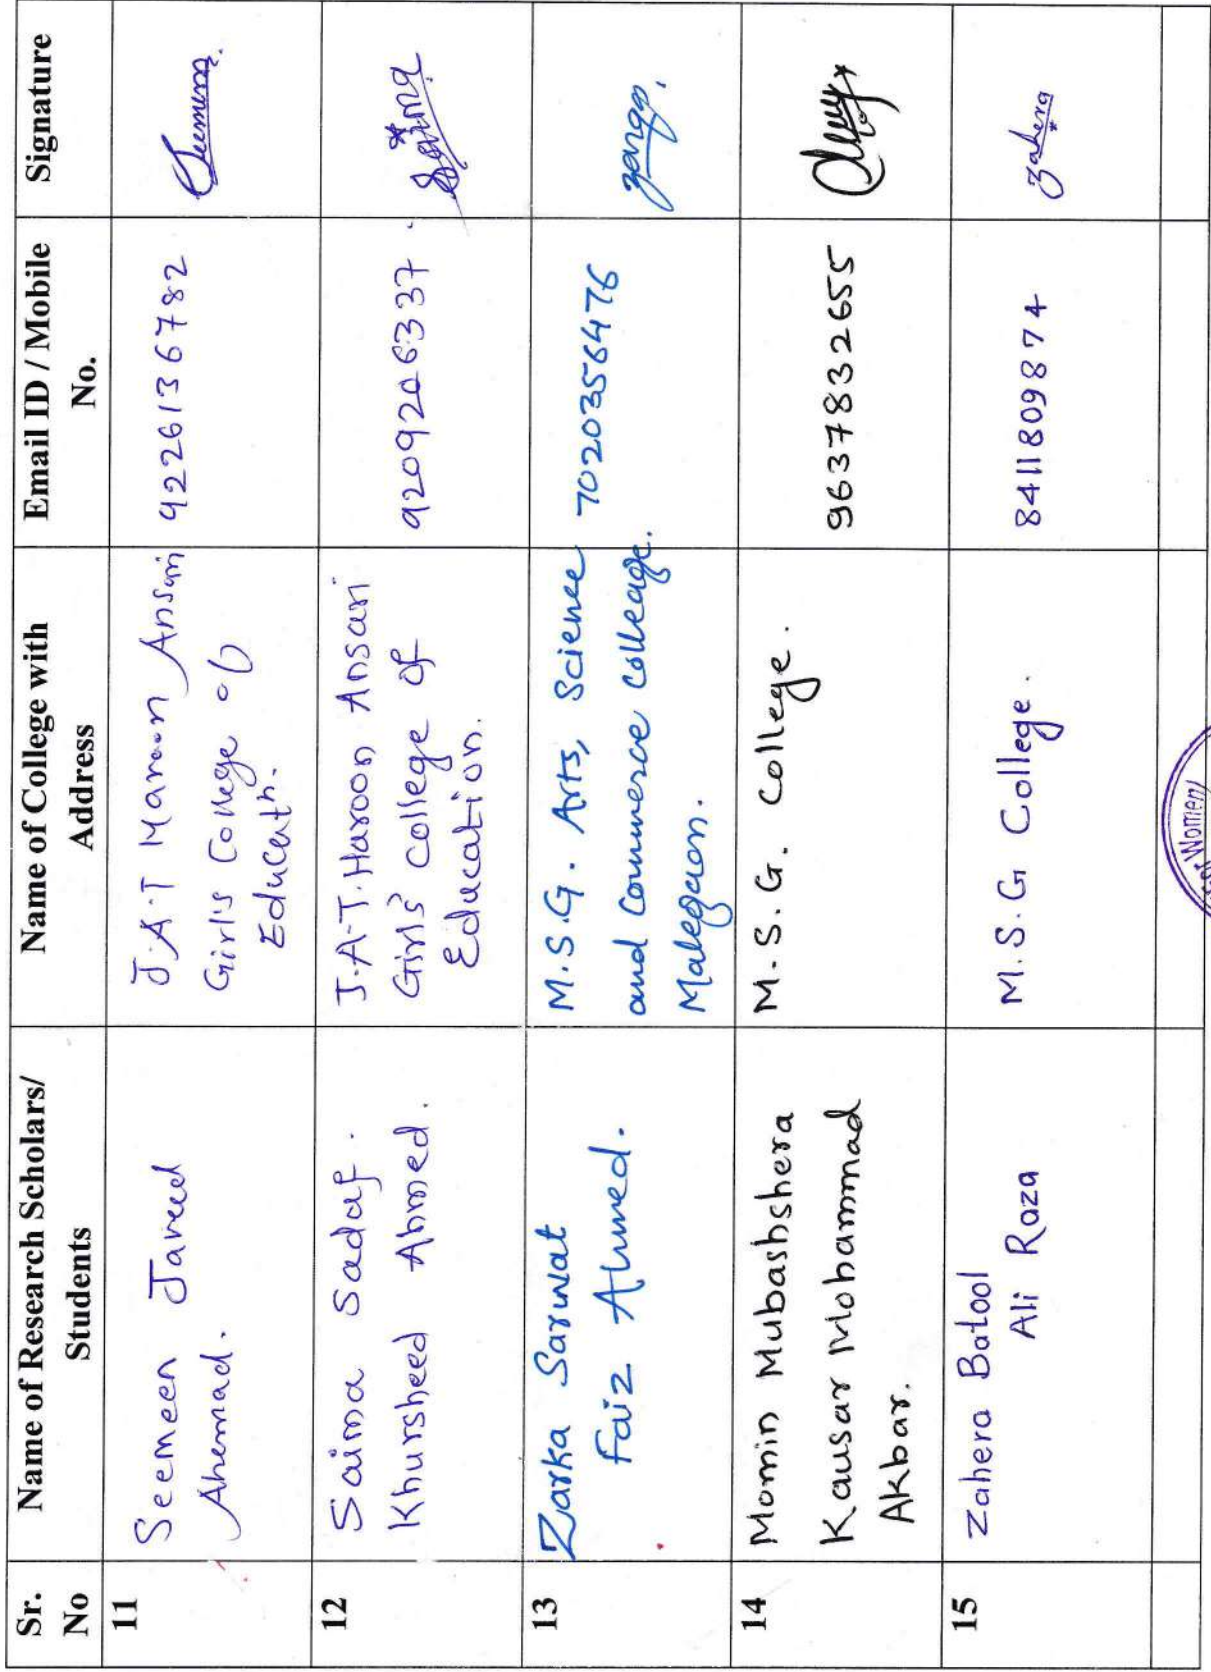 Sr. No
Name of Research Scholars/ Students
Name of College with Address
Email ID / Mobile No.
Signature
11
Seemeen Javeed
Ahemad.
J.A.T Haroon Ansari
Girl's College of
Educatn.
9226136782
12
Saima Sadaf.
Khursheed Ahmed.
J.A-T.Haroon Ansari
Girls' college of
Education.
9209206337
Saima
13
Zarka Sarwat
Faiz Ahmed.
M.S.G. Arts, Science
and Commerce colleage.
Malegaon.
7020356476
14
Momin Mubashshera
Kausar Mohammad
Akbar.
M.S.G. College.
9637832655
15
Zahera Batool
Ali Raza
M.S.G College.
8411809874
Zahera
for Women